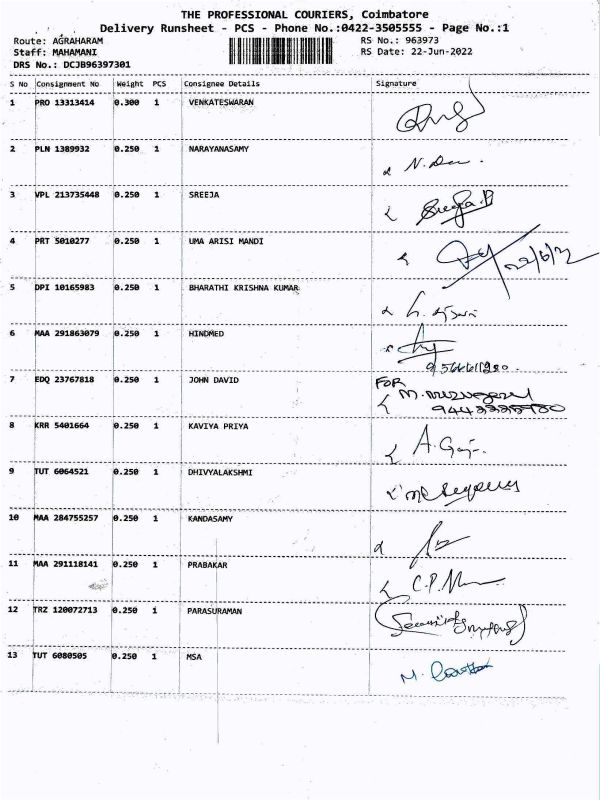 THE PROFESSIONAL COURIERS, Coimbatore
Delivery Runsheet - PCS - Phone No.:0422-3505555 - Page No.:1
Route: AGRAHARAM RS No.: 963973
Staff: MAHAMANI RS Date: 22-Jun-2022
DRS No.: DCJB96397301
S No Consignment No Weight PCS Consignee Details Signature
1 PRO 13313414 0.300 1 VENKATESWARAN
2 PLN 1389932 0.250 1 NARAYANASAMY
3 VPL 213735448 0.250 1 SREEJA
4 PRT 5010277 0.250 1 UMA ARISI MANDI
5 DPI 10165983 0.250 1 BHARATHI KRISHNA KUMAR
6 MAA 291863079 0.250 1 HINDMED
7 EDQ 23767818 0.250 1 JOHN DAVID FOR
8 KRR 5401664 0.250 1 KAVIYA PRIYA
9 TUT 6064521 0.250 1 DHIVYALAKSHMI
10 MAA 284755257 0.250 1 KANDASAMY
11 MAA 291118141 0.250 1 PRABAKAR
12 TRZ 120072713 0.250 1 PARASURAMAN
13 TUT 6080505 0.250 1 MSA